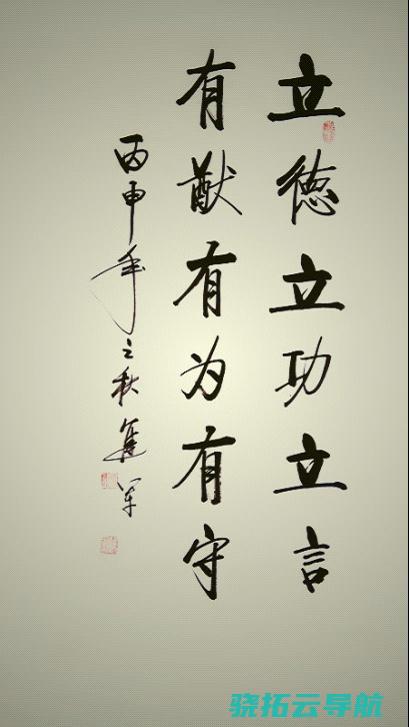 立德立功立言
有猷有为有守
丙申年之秋建军
骁拓云导航